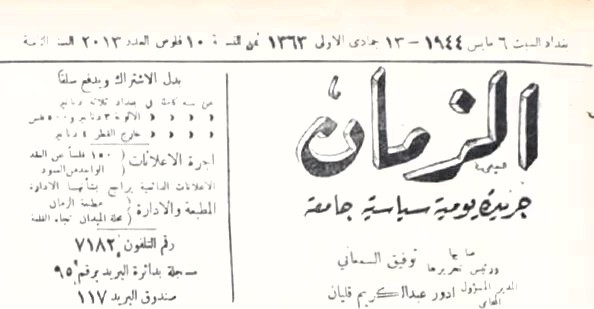 بغداد السبت ٦ مايس ١٩٤٤ - ١٣ جمادى الاولى ١٣٦٣ ثمن النسخة ١٠ فلوس العدد ٢٠١٣ السنة
الزمان
جريدة يومية سياسية جامعة
صاحبها
ورئيس تحريرها توفيق السمعاني
المدير المسؤول ادور عبدالكريم قليان
المحامي
بدل الاشتراك ويدفع سلفا
عن سنة كاملة في بغداد ثلاثة دنانير
» » » » الالوية ٣ دنانير و ٥٠٠ فلس
» » » » خارج القطر ٤ دنانير
اجرة الاعلانات ( ١٥٠ فلسا عن العقد
الواحد من العمود
الاعلانات يراجع بشأنها الادارة
المطبعة والادارة ( مطبعة الزمان
محلة الميدان تجاه القلعة
رقم التلفون ٧١٨٢
مسجلة بدائرة البريد برقم ٩٥
صندوق البريد ١١٧